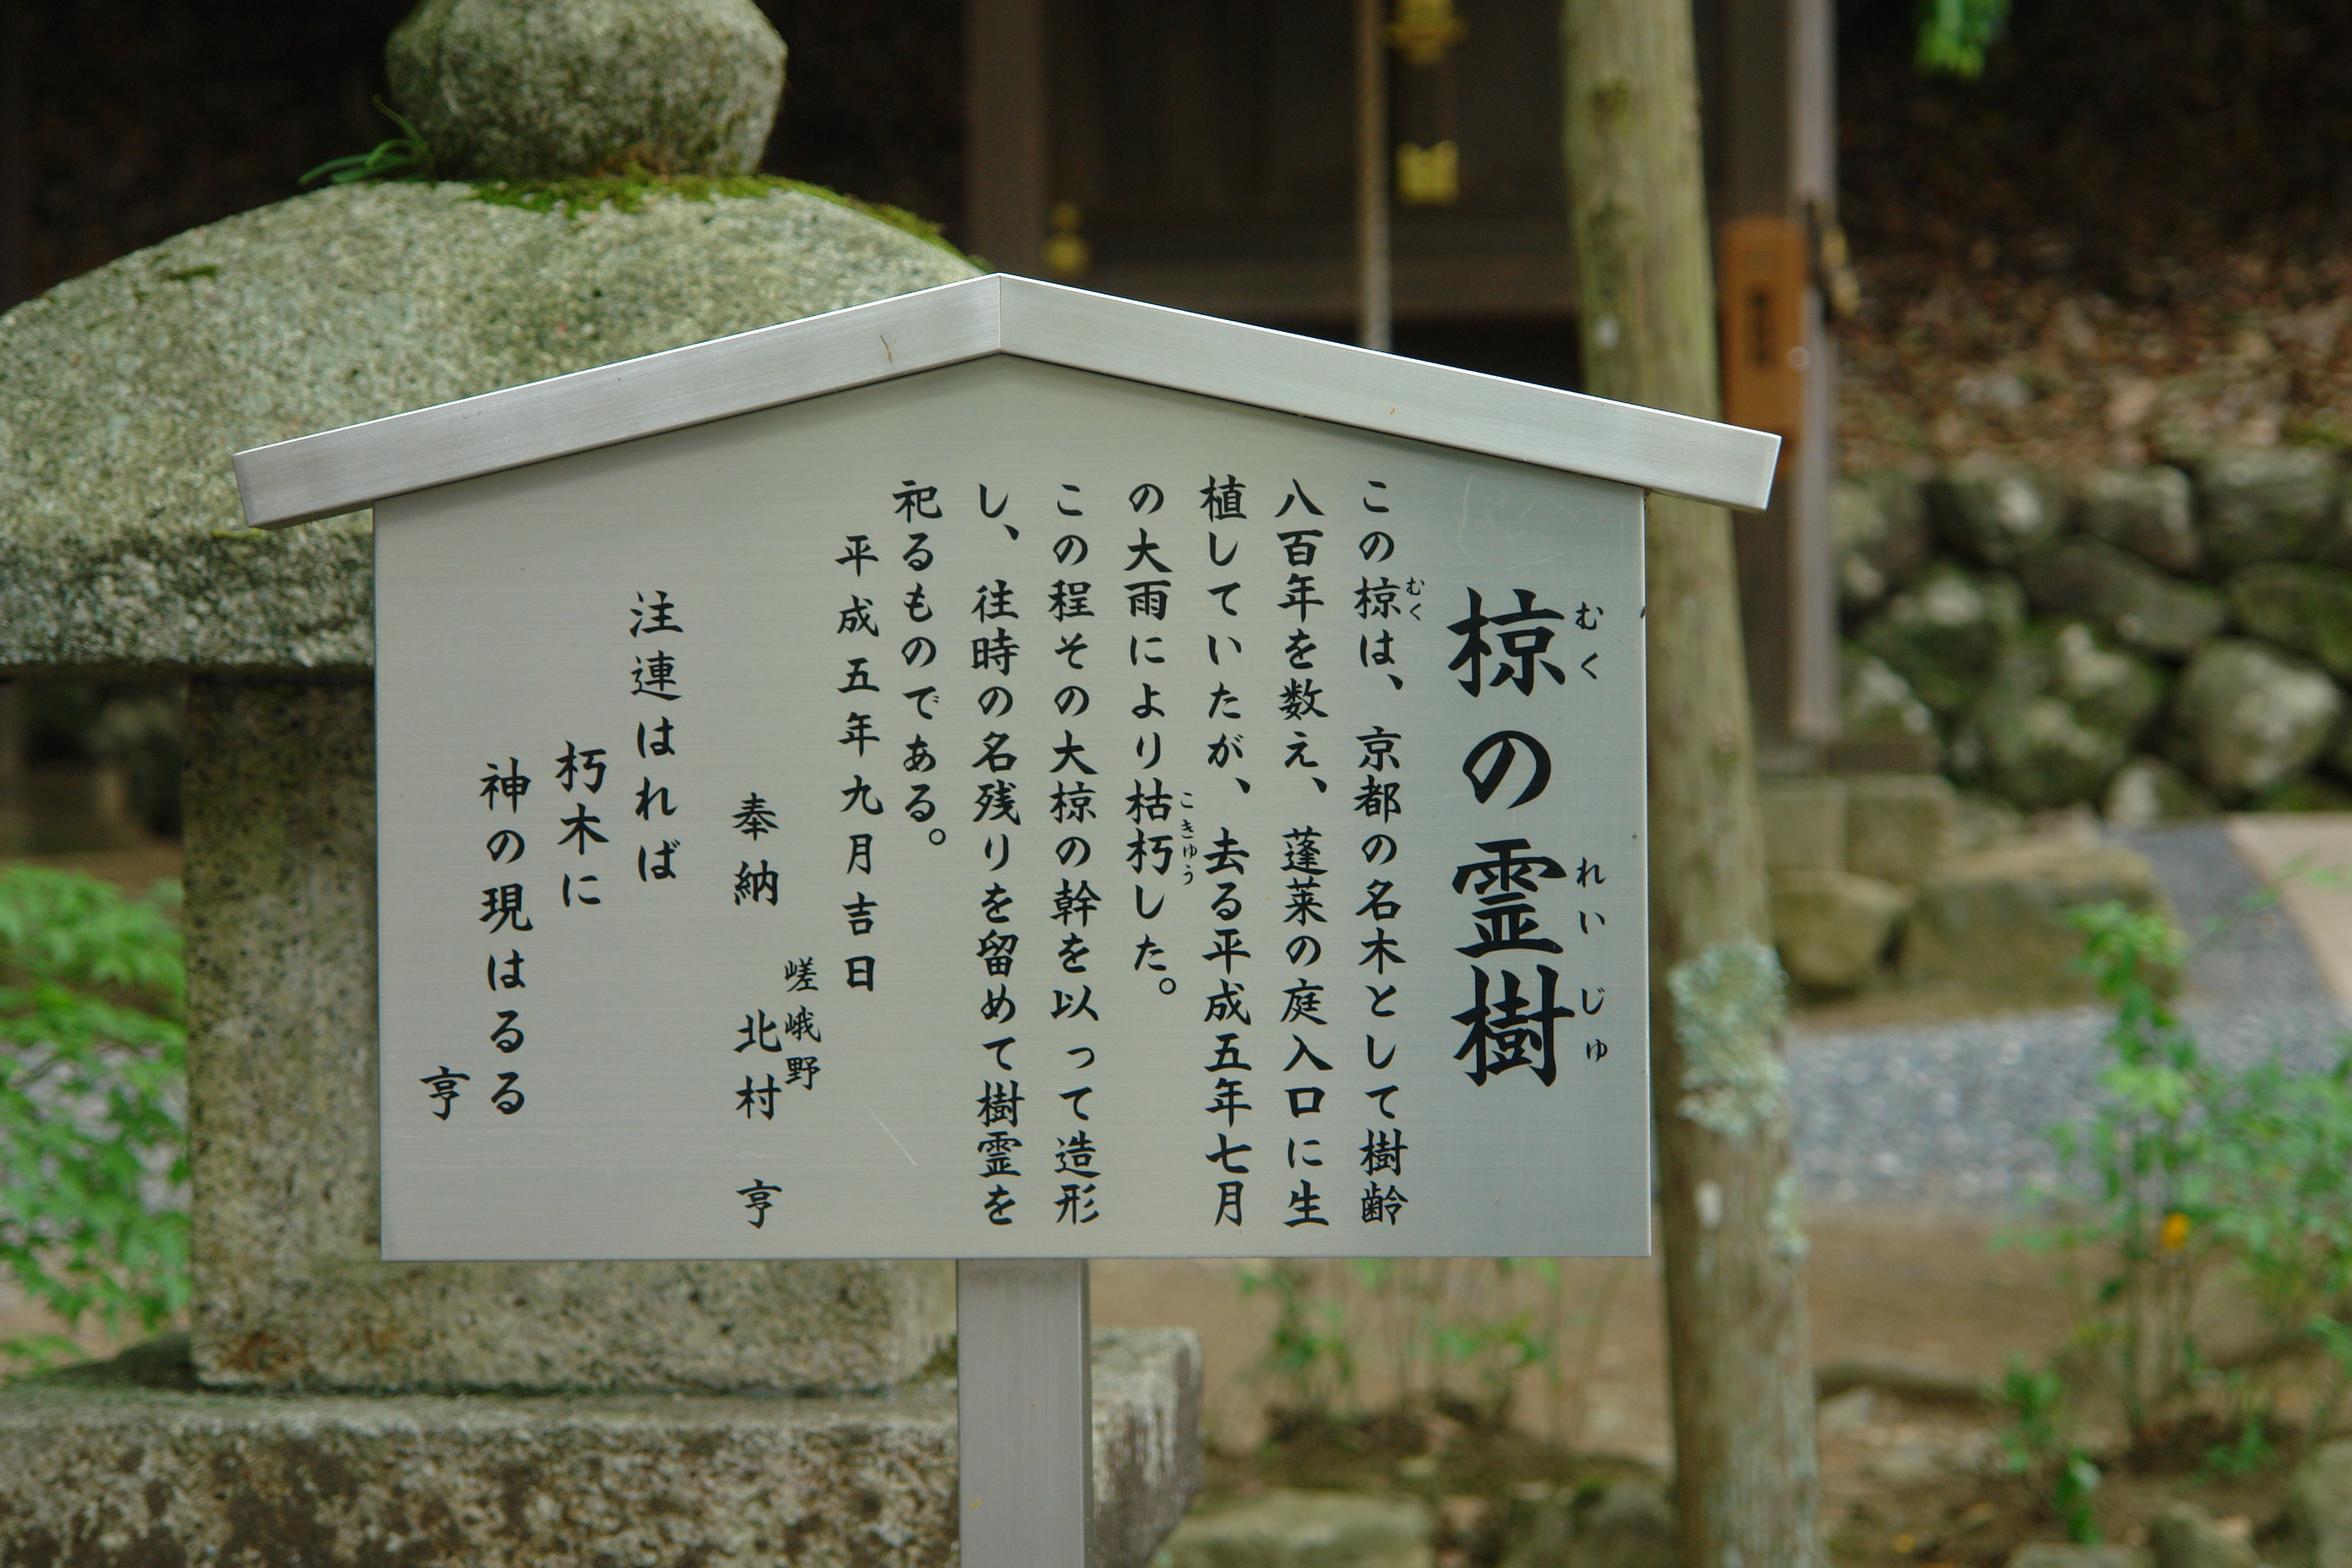 椋の霊樹
むく れいじゅ
この椋は、京都の名木として樹齢
むく
八百年を数え、蓬莱の庭入口に生
植していたが、去る平成五年七月
の大雨により枯朽した。
こきゅう
この程その大椋の幹を以って造形
し、往時の名残りを留めて樹霊を
祀るものである。
平成五年九月吉日
嵯峨野
奉納 北村 亨
注連はれば
朽木に
神の現はるる
亨